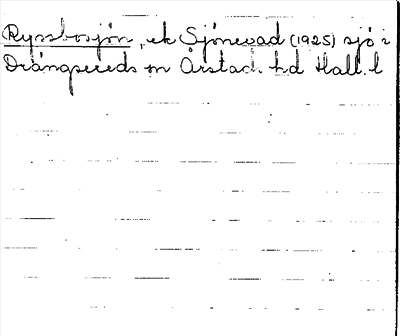 Ryssbosjön, ek Sjönevad (1925) sjö i
Drängsereds sn Årstad. hd Hall. l